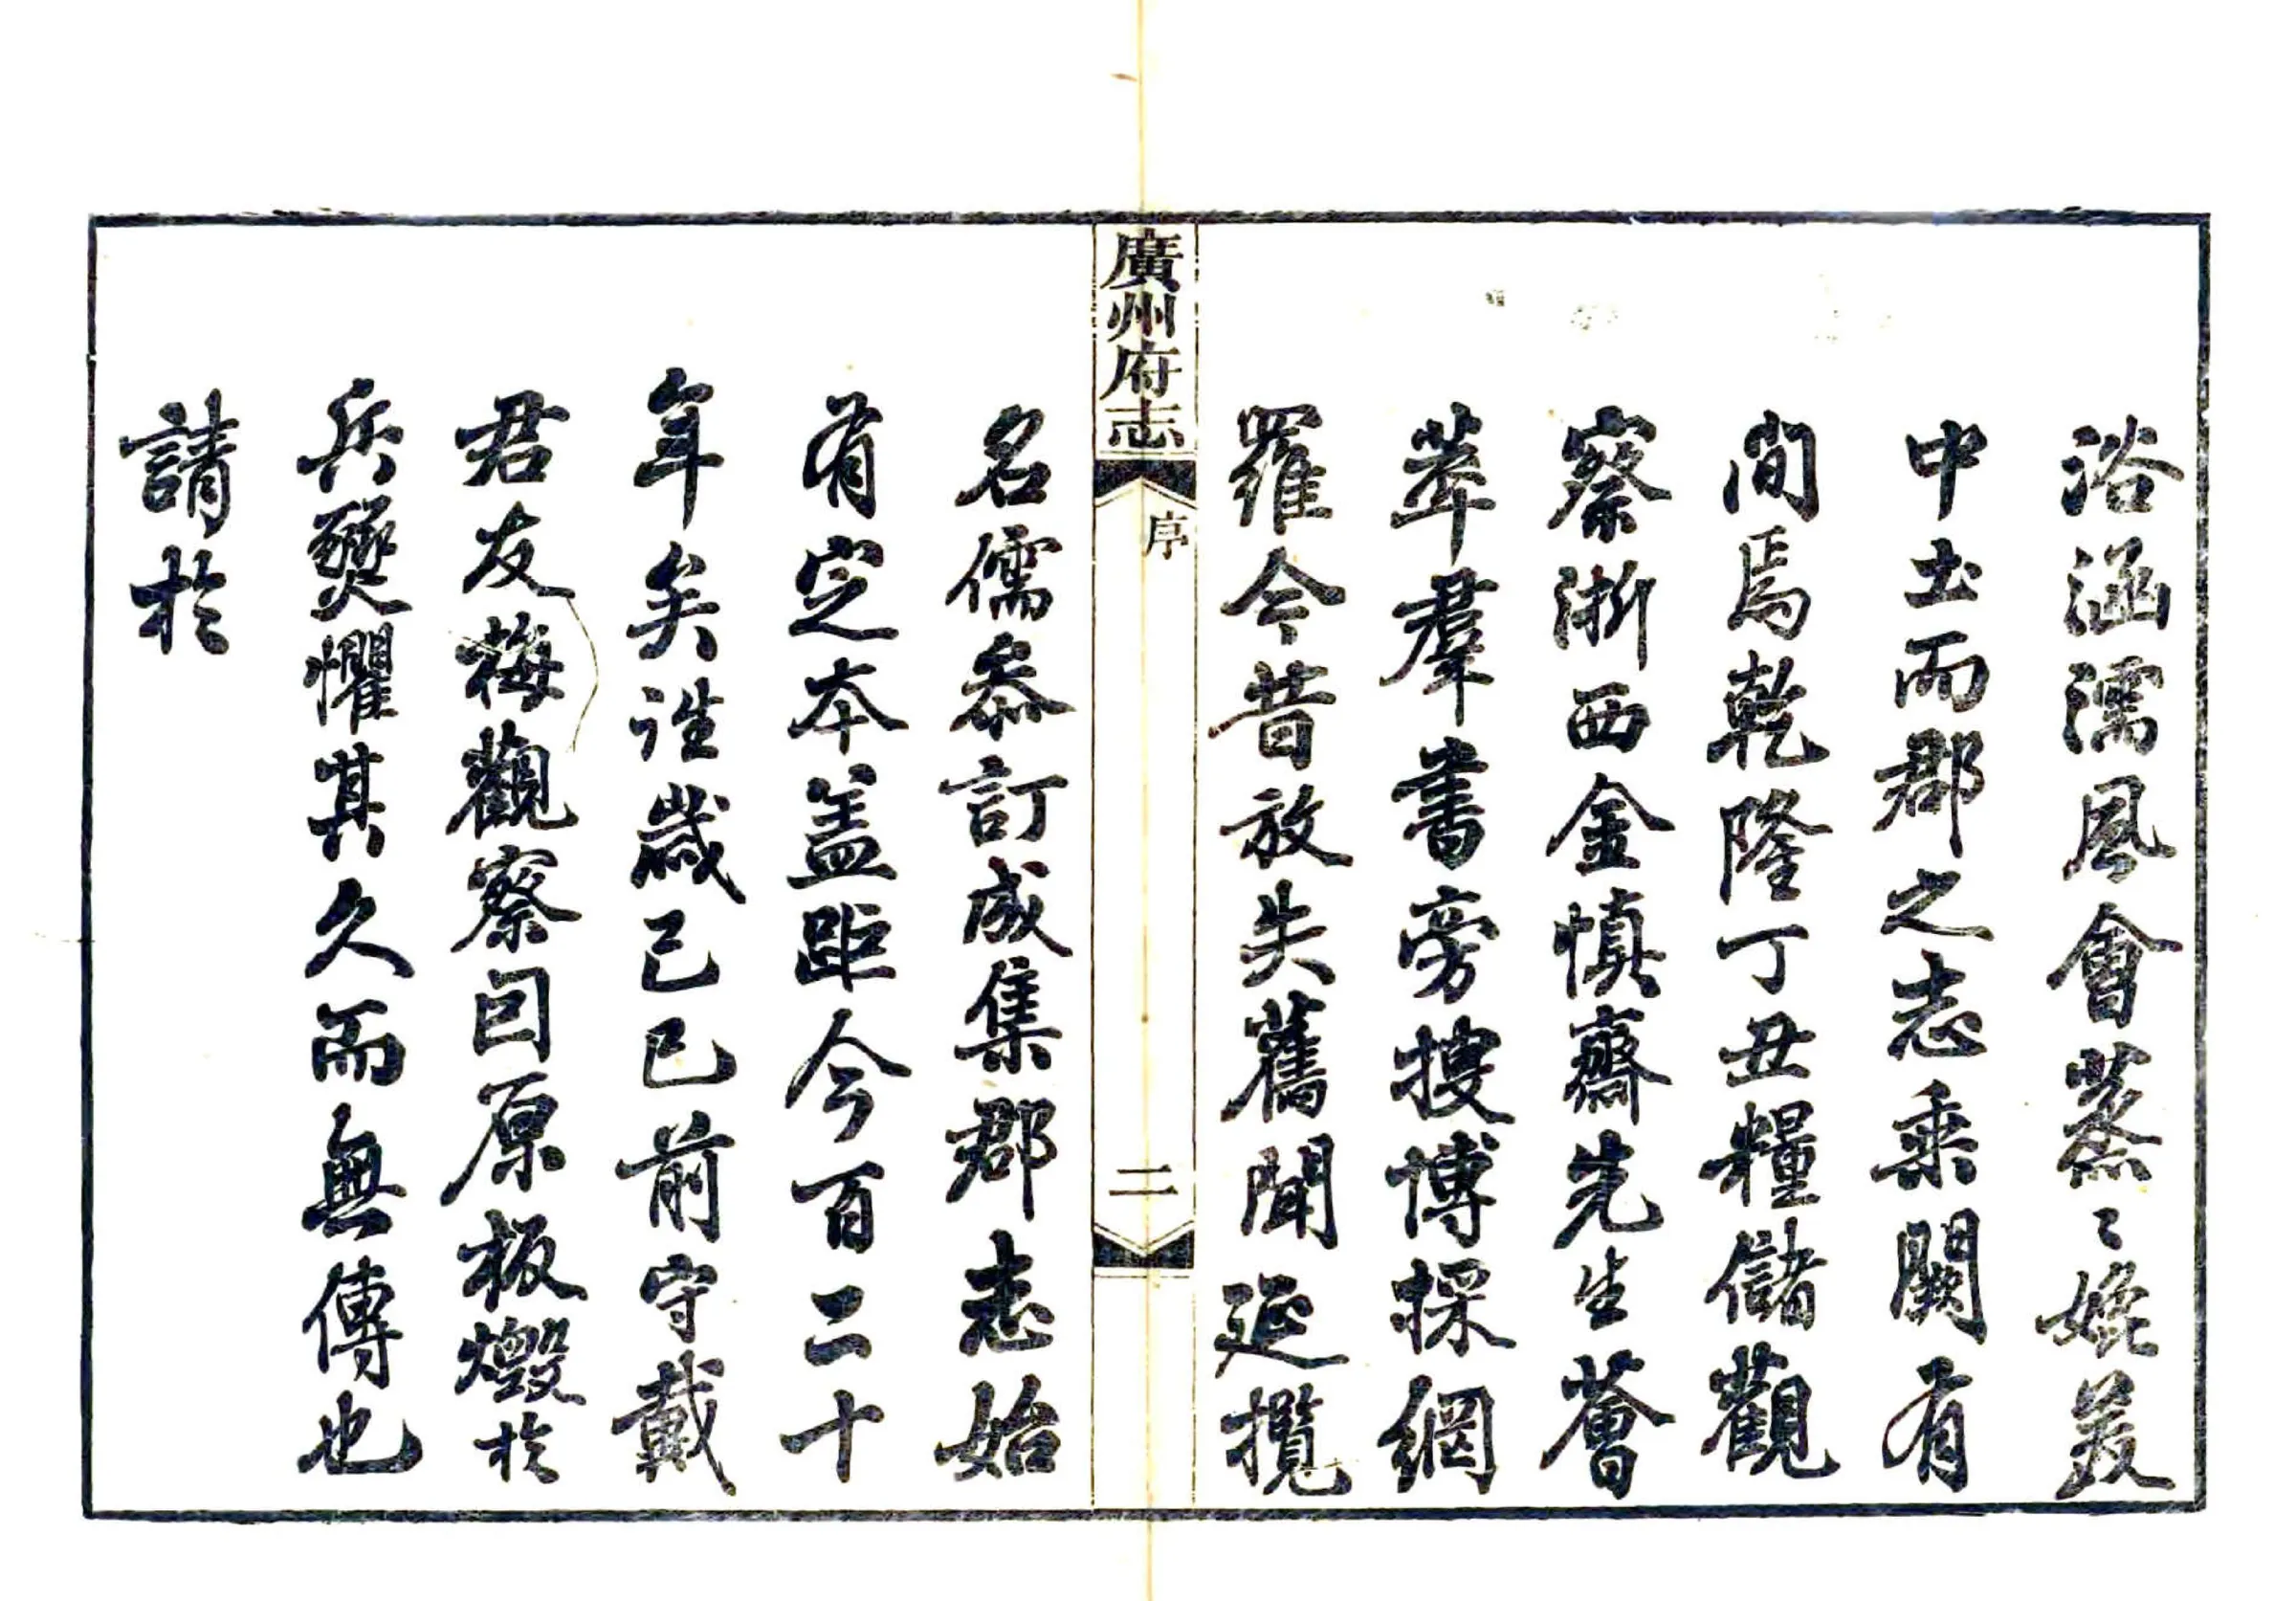 浴涵濡風會蒸〻媲美
中土而郡之志乘闕有
間焉乾隆丁丑糧儲觀
察浙西金慎齋先生薈
萃羣書旁搜博採網
羅今昔放失舊聞延攬
廣州府志
序
二
名儒叅訂成集郡志始
有定本盖距今百二十
年矣詿歲己巳前守戴
君友梅觀察因原板燬於
兵燹懼其久而無傳也
請於